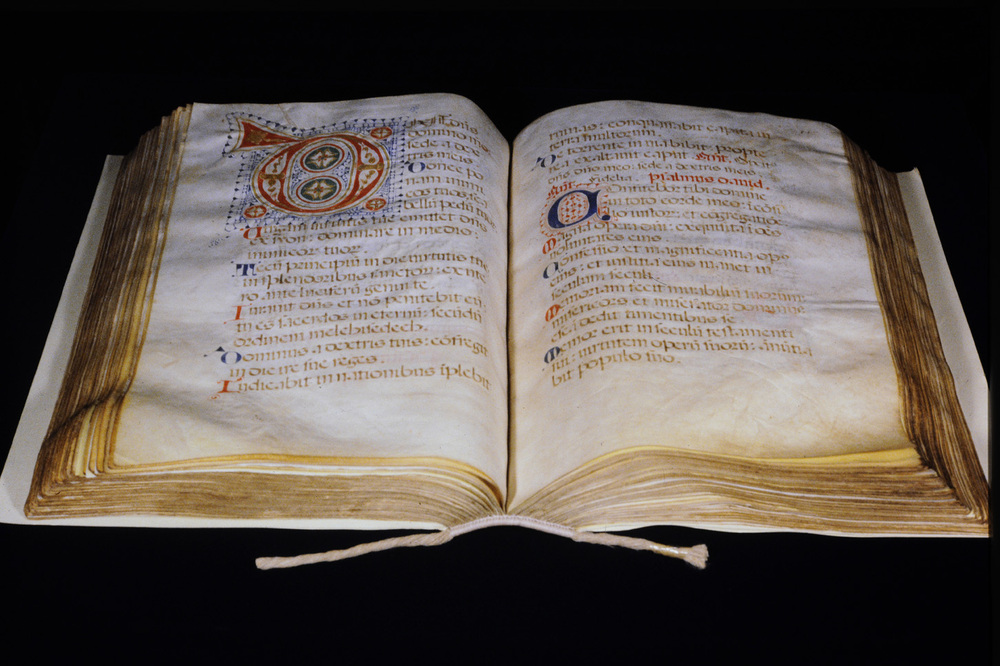 domino me
sede a dex
tris meis
Donec po
nam inimi
cos tuos sca
bellū pedū tuo
emittet dns
ex syon: dominare in medio
inimicor tuor
Tecū principiū in die virtutis tue
in splendoribus sanctor: ex ute
ro ante luciferū genui te.
Iuravit dns et nō penitebit eū
tu es sacerdos in eternū: secūdū
ordinem melchisedech.
Dominus a dextris tuis: cōfregit
in die ire sue reges.
Iudicabit in nationibus īplebit
ruinas: conquassabit capita in
terra multorum.
De torrente in via bibit: propte
rea exaltavit caput.
dns dno meo: sede a dextris meis.
Fidelia. Psalmus david.
Confitebor tibi domine
in toto corde meo: ī cōsi
lio iustor: et cogregatiōe
Magna opera dni: exquisita ī oēs
voluntates eius.
Confessio et magnificentia opus
eius: et iusticia eius manet in
seculum seculi.
Memoriam fecit mirabiliū suorum
misericors et miserator dominus
escā dedit timentibus se.
Memor erit in seculū testamenti
sui: virtutem operū suorū: ānūtia
bit populo suo.